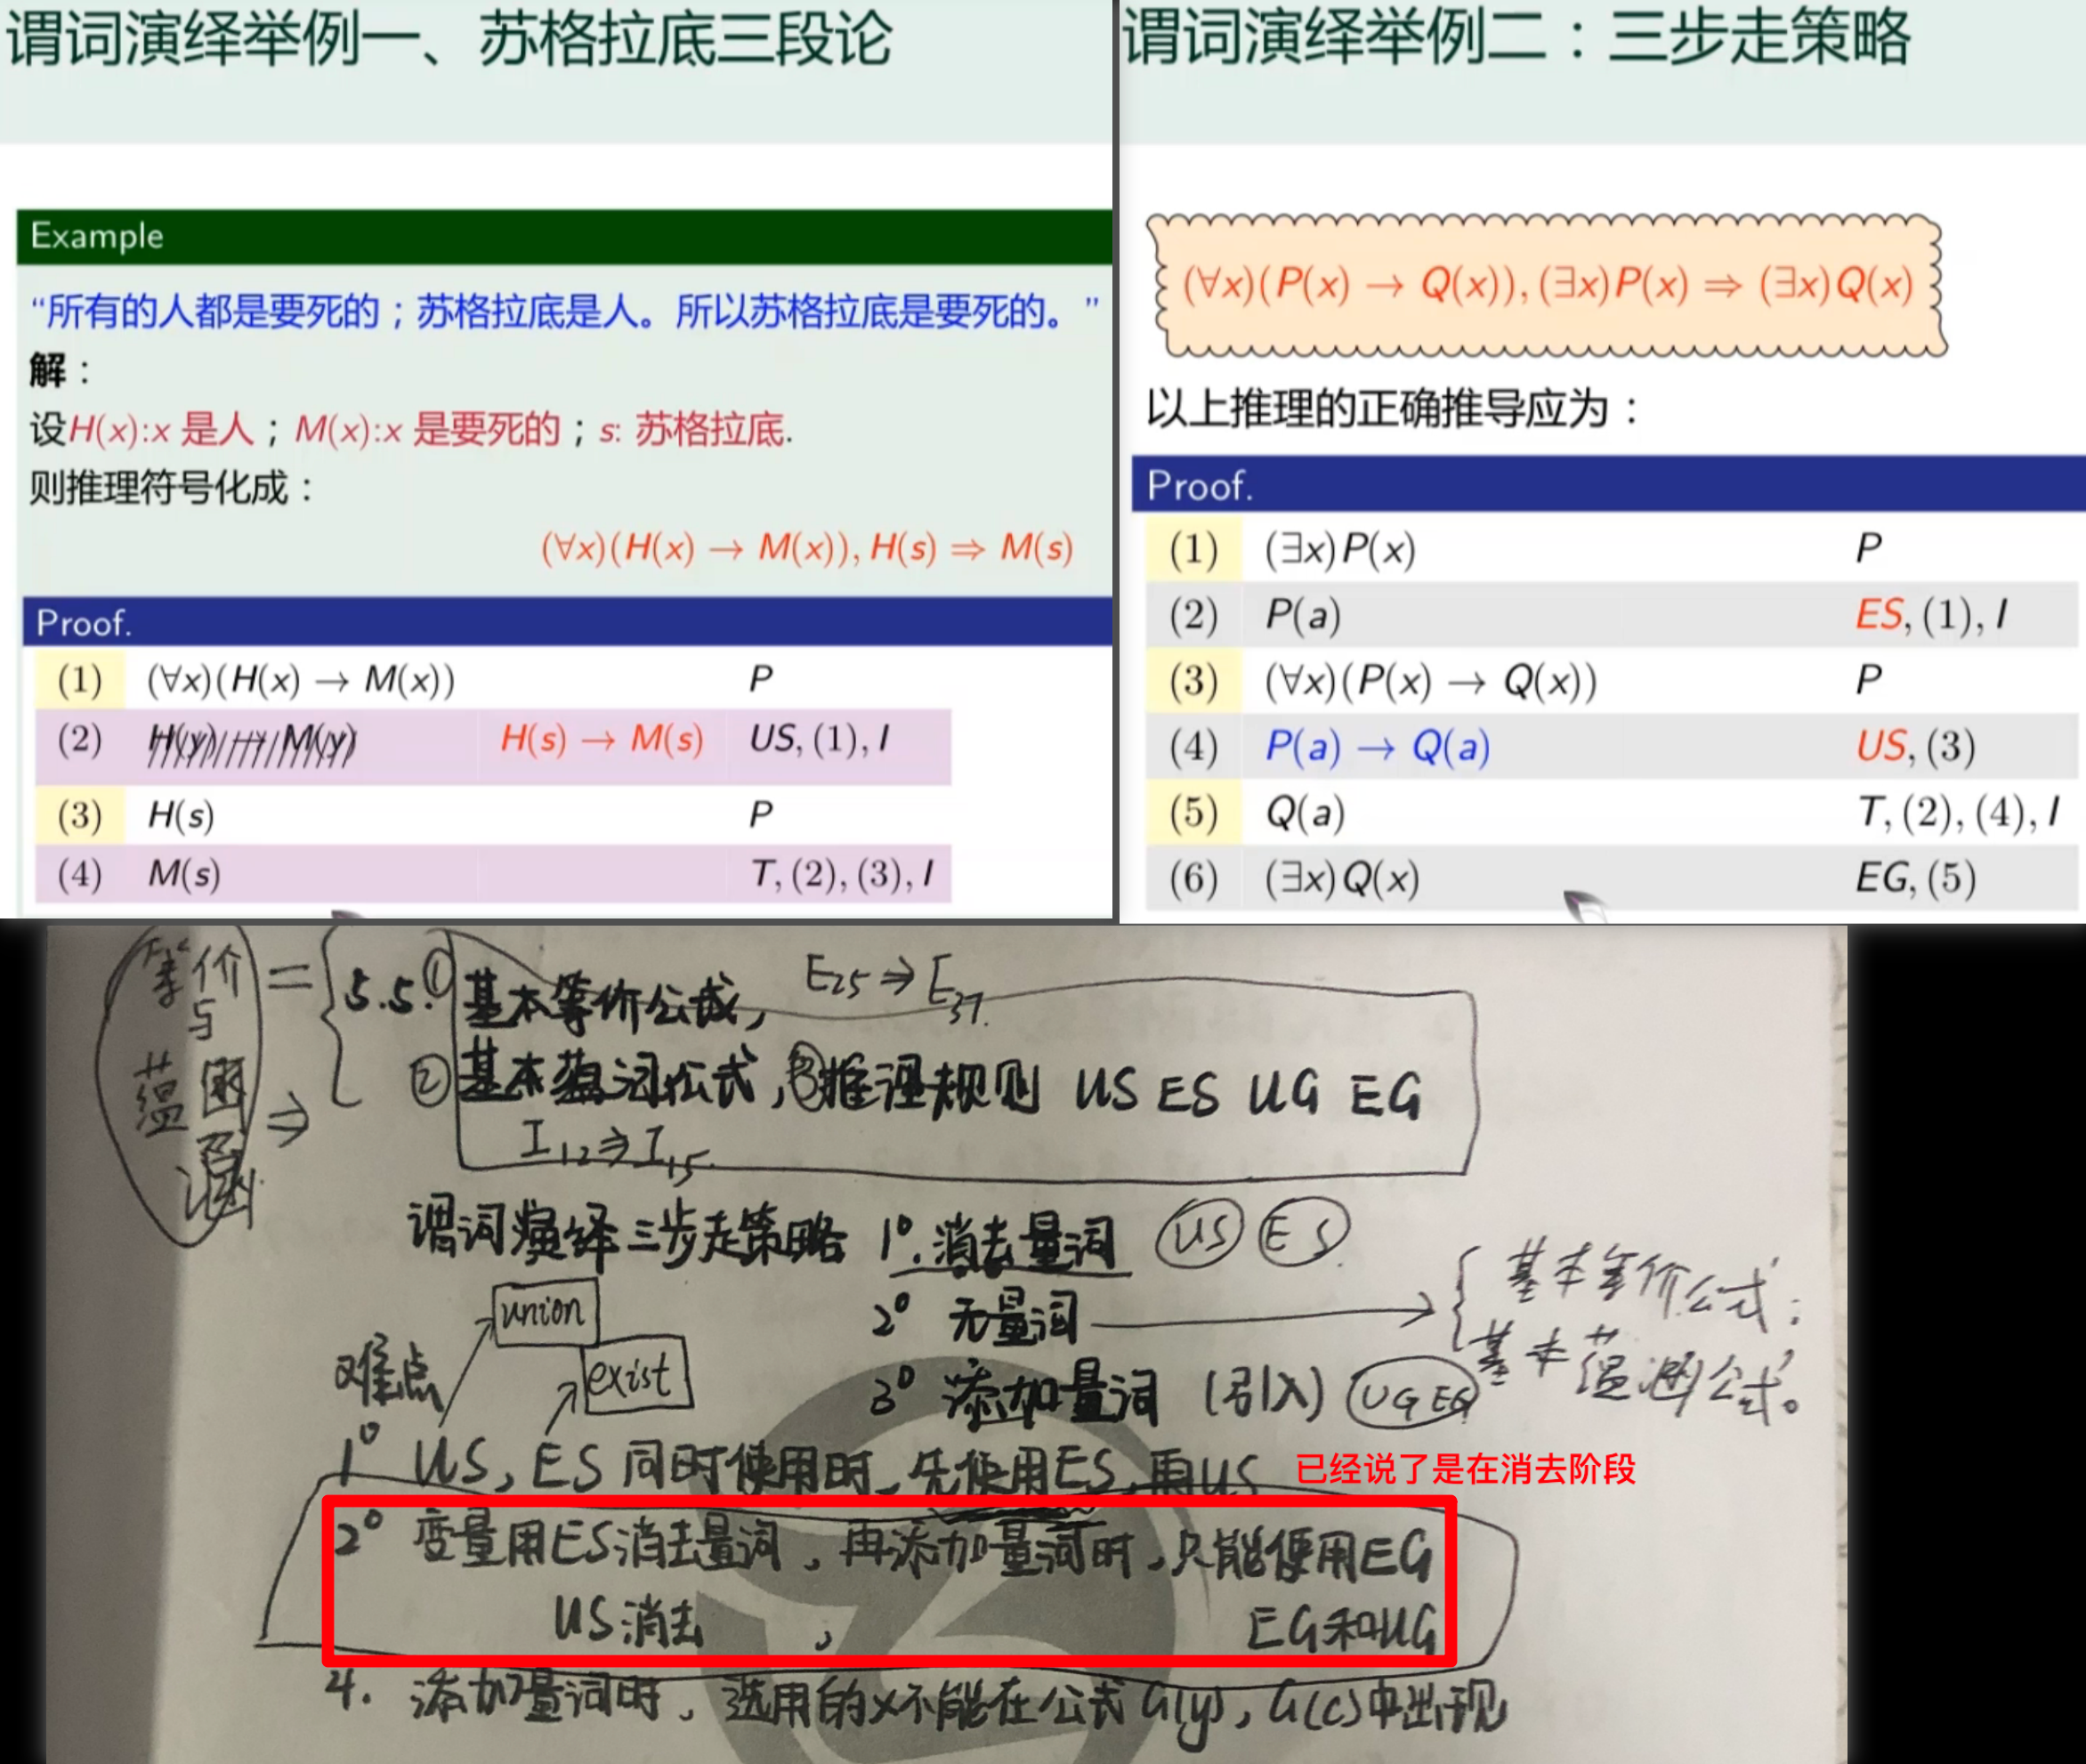 谓词演绎举例一、苏格拉底三段论
Example
“所有的人都是要死的；苏格拉底是人。所以苏格拉底是要死的。”
解：
设H(x):x 是人；M(x):x 是要死的；s: 苏格拉底.
则推理符号化成：
(∀x)(H(x) → M(x)), H(s) ⇒ M(s)
Proof.
(1) (∀x)(H(x) → M(x)) P
(2) H(y) → M(y) H(s) → M(s) US, (1), I
(3) H(s) P
(4) M(s) T, (2), (3), I
谓词演绎举例二：三步走策略
(∀x)(P(x) → Q(x)), (∃x)P(x) ⇒ (∃x)Q(x)
以上推理的正确推导应为：
Proof.
(1) (∃x)P(x) P
(2) P(a) ES, (1), I
(3) (∀x)(P(x) → Q(x)) P
(4) P(a) → Q(a) US, (3)
(5) Q(a) T, (2), (4), I
(6) (∃x)Q(x) EG, (5)
等价与蕴涵 = ⇒
5.5. ① 基本等价公式, E25 ⇒ E37.
② 基本蕴词公式, ③推理规则 US ES UG EG
I12 ⇒ I15.
谓词演绎三步走策略 1° 消去量词 US ES
2° 无量词 → 基本等价公式;
基本蕴涵公式。
3° 添加量词 (引入) UG EG
union
exist
难点
1° US, ES 同时使用时, 先使用ES, 再US 已经说了是在消去阶段
2° 变量用ES消去量词, 再添加量词时, 只能使用EG
US消去, EG和UG
4. 添加量词时, 选用的x不能在公式G(y), G(c)中出现